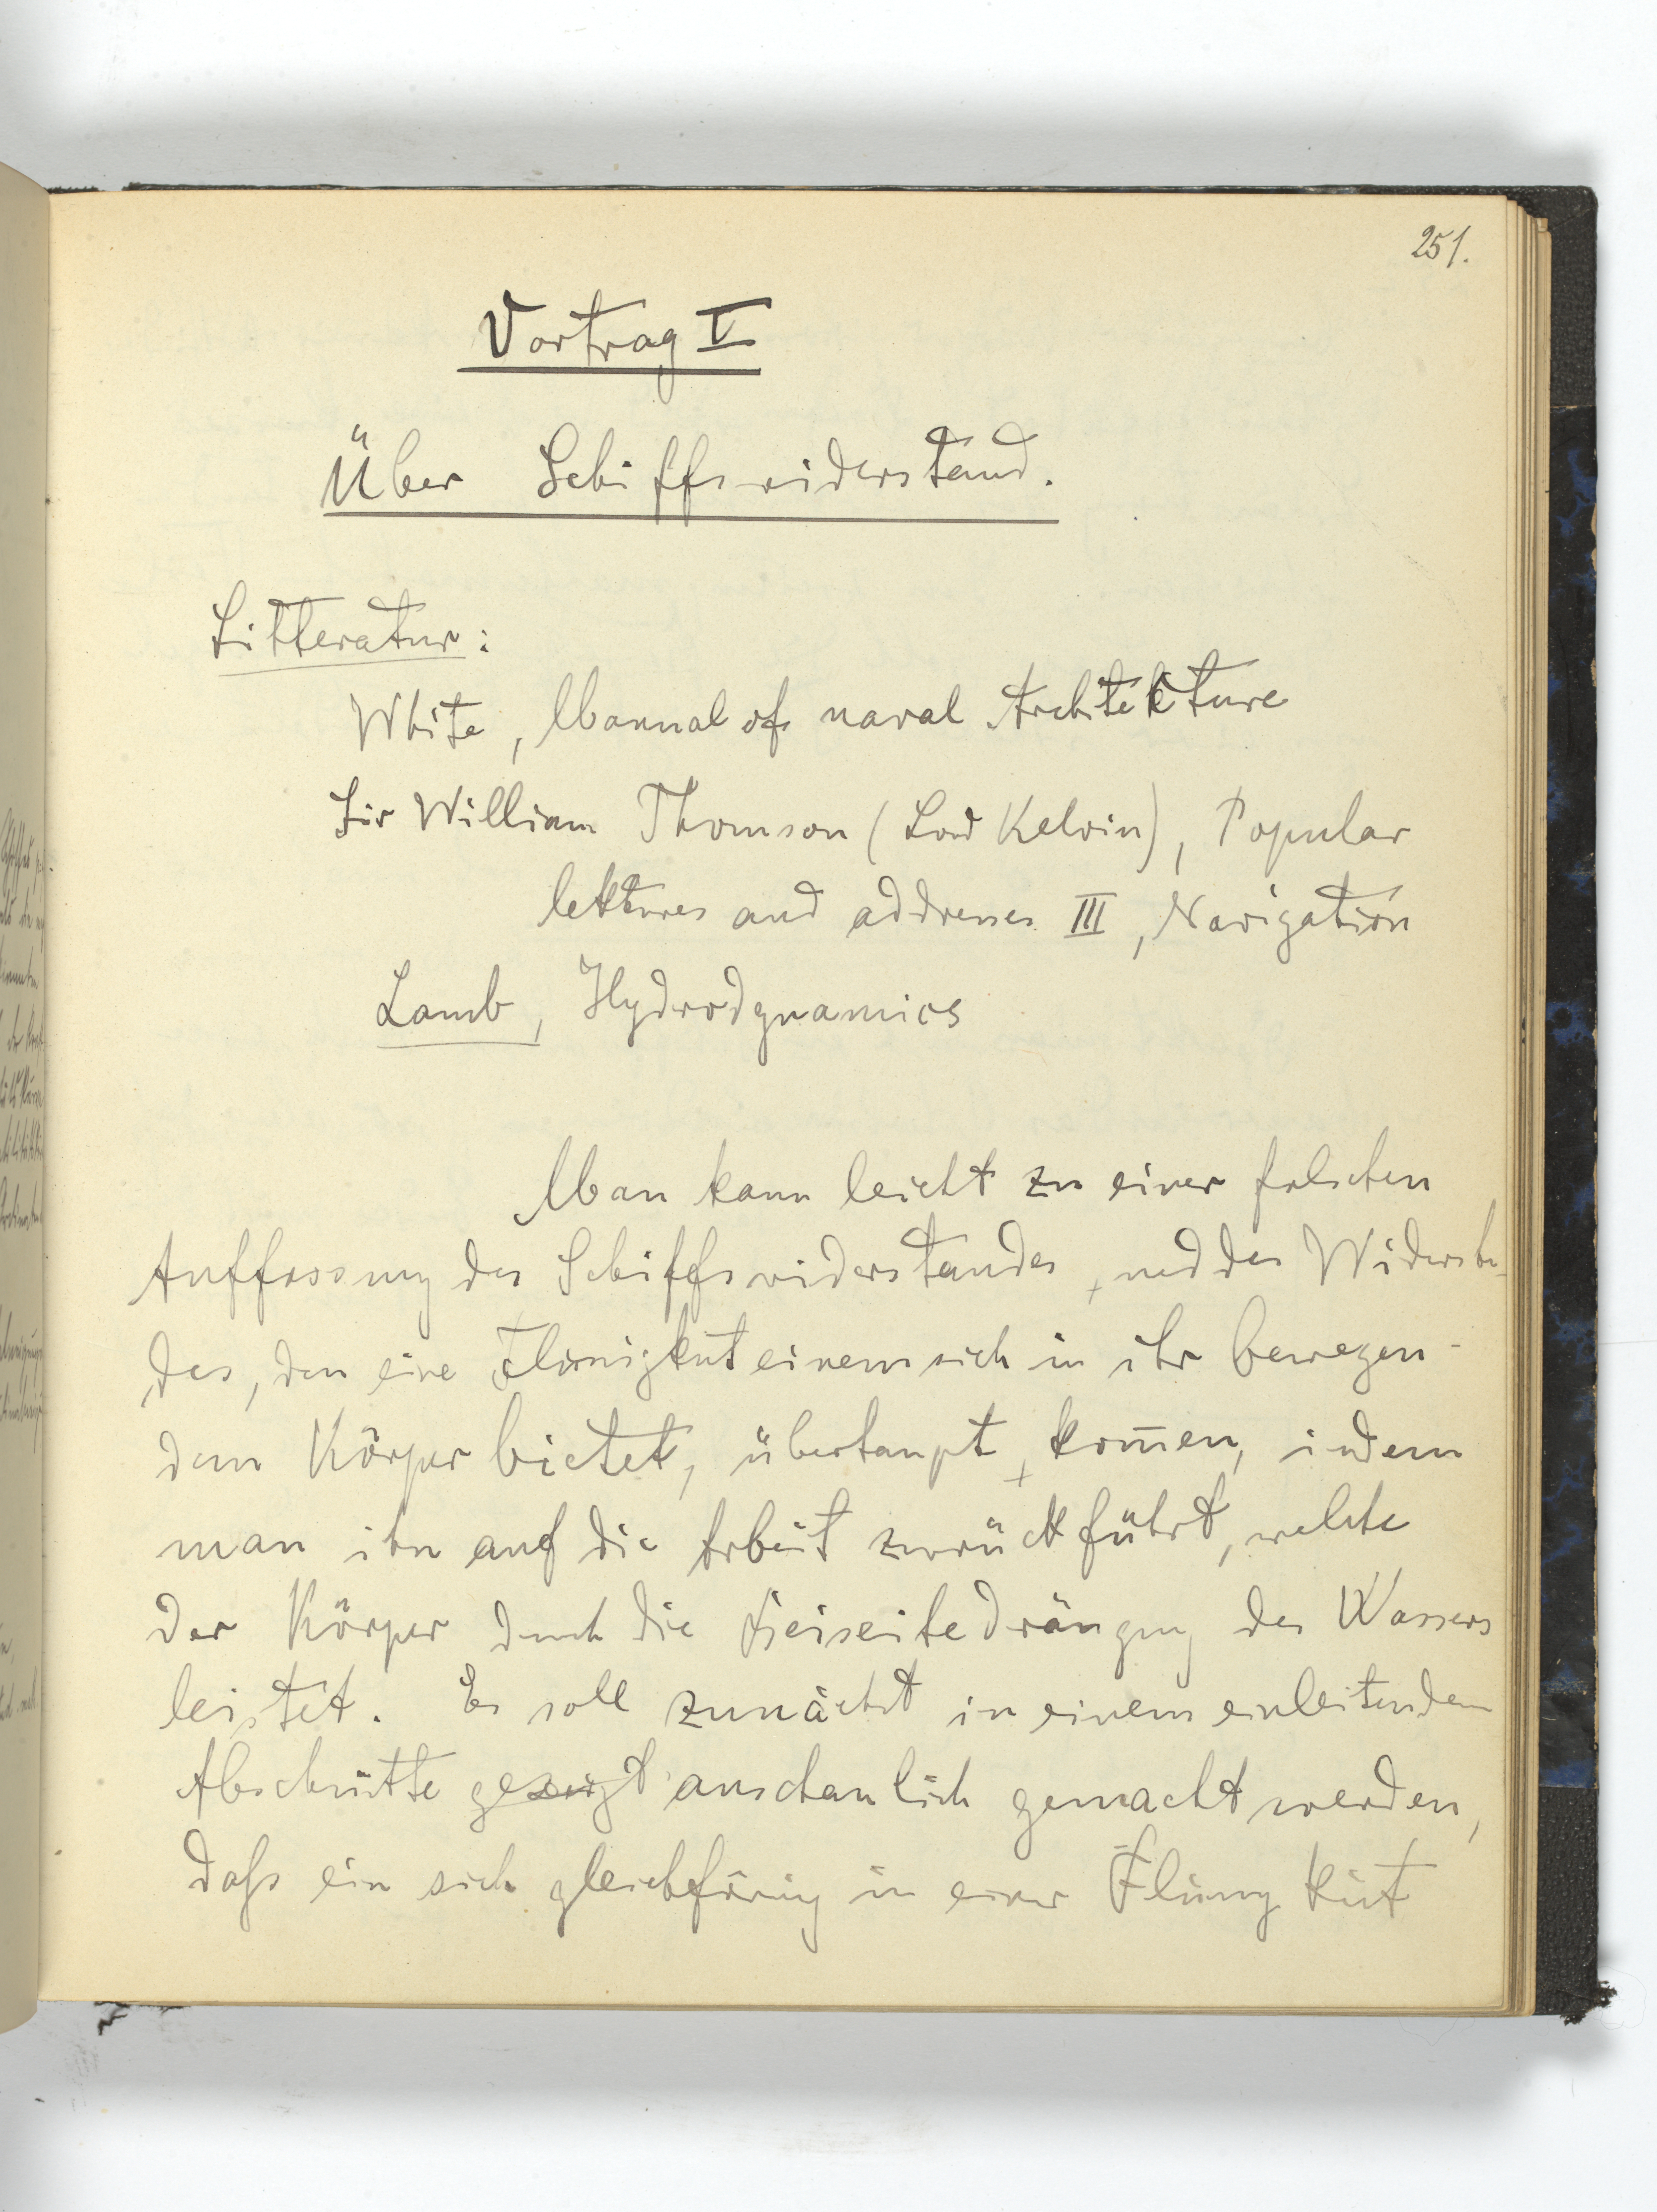 251.
Vortrag V
Über Schiffswiderstand.
Litteratur:
White, Manual of naval Architekture
Sir William Thomson (Lord Kelvin), Popular
lektures and addresses III, Navigation
Lamb, Hydrodynamics
Man kann leicht zu einer falschen
Auffassung des Schiffswiderstandes, und des Widerstan-
des, den eine Flüssigkeit einem sich in ihr bewegen-
dem Körper bietet, überhaupt, kom̅en, indem
man ihn auf die Arbeit zurückführt, welche
der Körper durch die Beiseitedrängung des Wassers
leistet. Es soll zunächst in einem einleitendem
Abschnitte gezeigt anschaulich gemacht werden,
daß ein sich gleichförmig in einer Flüssigkeit